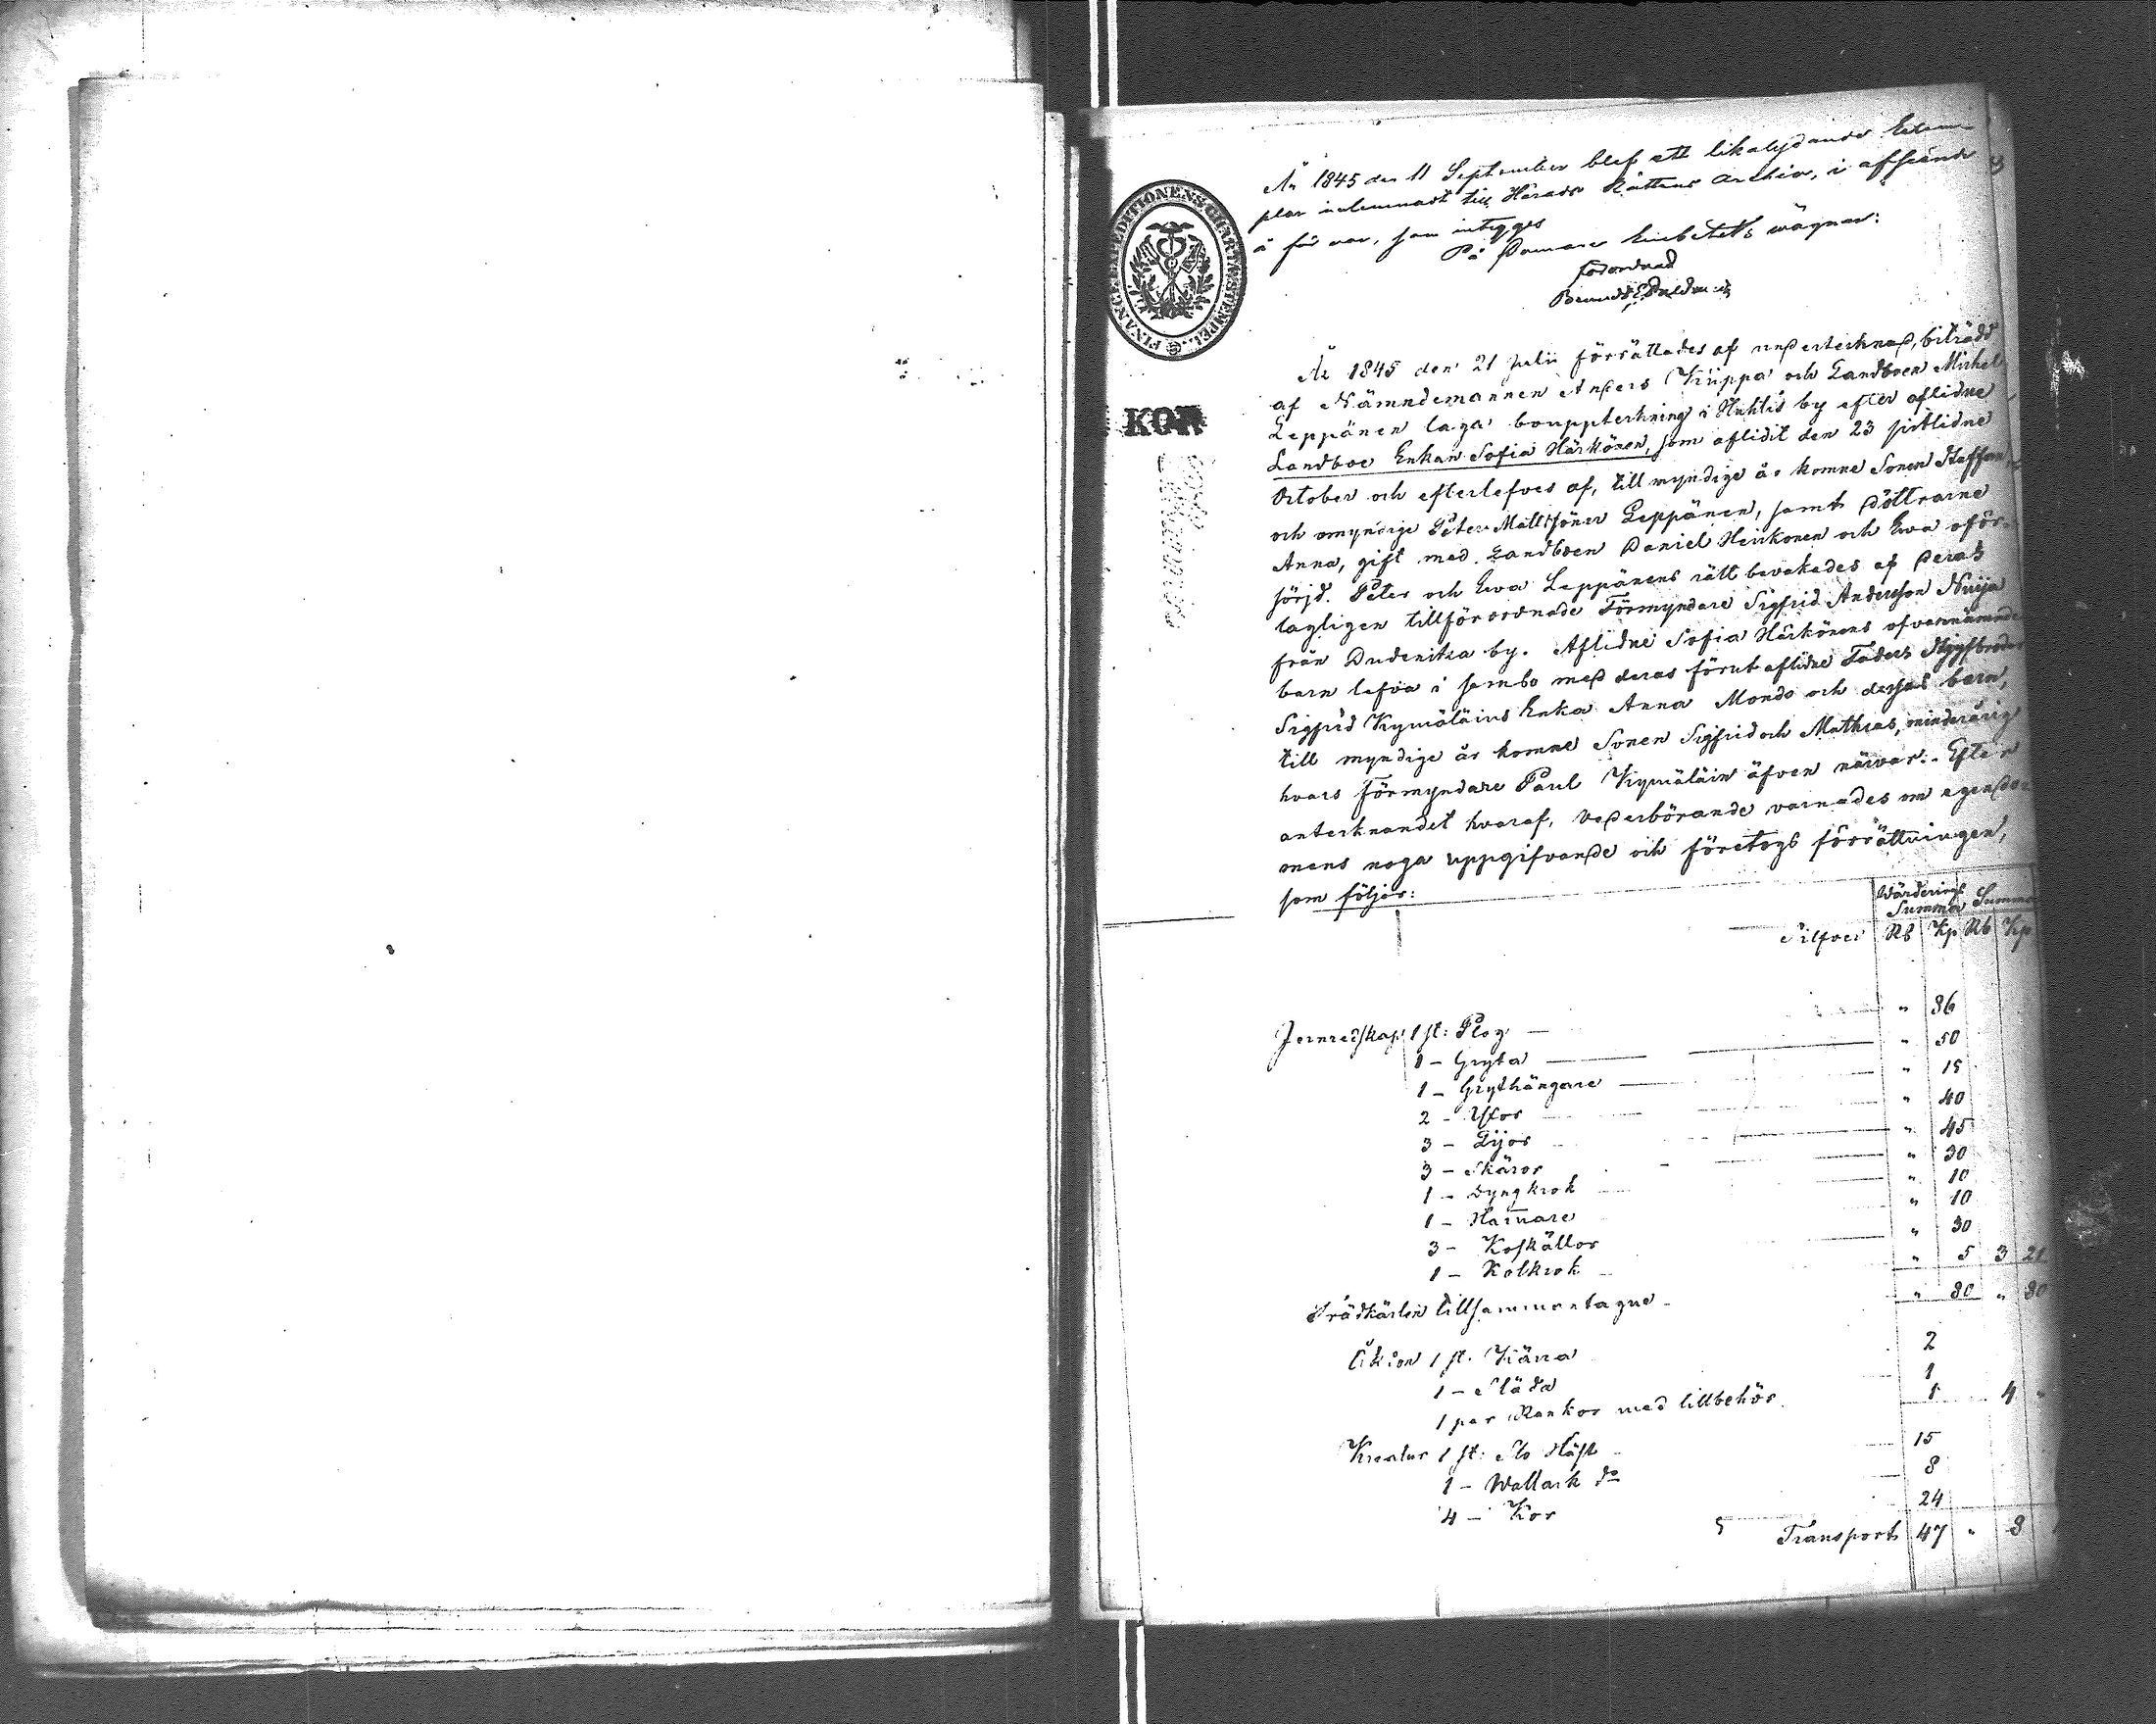 År 1845 den 11 September blef ett likalydande Exem-
plar inlemnadt till Härads Rättens Archiv, i afseende
å för var, som intygges
På Domare Embetets wägnar:
förordnad
FINANCE EXPEDITIONENS CHARTÆ STEMPEL
KOP
År 1845 den 21 Julii förrättades af undertecknad, biträdd
af Nämndemannen Anders Kiippa och Landboen Michel
Leppänen laga bouppteckning i Huhtis by efter aflidne
Landboe Enkan Sofia Härkönen, som aflidit den 23 sistlidne
October och efterlefves af, till myndige år komne Sonen Staffan
och omyndige Peter Mattssöner Leppänen, samt döttrarne
Anna, gift med Landboen Daniel Heikonen och Ewa oför-
sörjd. Peter och Ewa Leppänens rätt bevakades af deras
lagligen tillförordnade Förmyndare Sigfrid Andersson Nuija
från Dudenitza by. Aflidne Sofia Härkönens ofvannämnde
barn lefva i sambo med deras förut aflidne Faders Styfbroder
Sigfrid Kymäläins Enka Anna Mondo och dessas barn,
till myndige år komne Sonen Sigfrid och Mathias, minderårig
hvars Förmyndare Paul Kymäläin äfven närvar. Efter
antecknandet hvaraf, vederbörande varnades om egendo-
mens noga uppgifvande och företogs förrättningen,
som följer:
Wärderings Summa Summa
Silfver Rb Kp Rb Kp
Jernredskap 1 st: Plog — " 86
1 - Gryta — " 50
1 - Grythängare — " 15
2 - Yxor " 40
3 - Lijor " 45
3 - Skäror " 30
1 - Dyngkrok " 10
1 - Hamare " 10
3 - Koskällor " 30
1 - Kolkrok " 5 3 21
Trädkärlen tillsammantagne " 80 " 80
Åkdon 1 st. Kärra 2
1 - Släda 1
1 par Rankor med tillbehör 1 4 -
Kreatur 1 st: Sto Häst 15
1 - Wallack do 8
4 - Kor 24
Transport 47 " 8